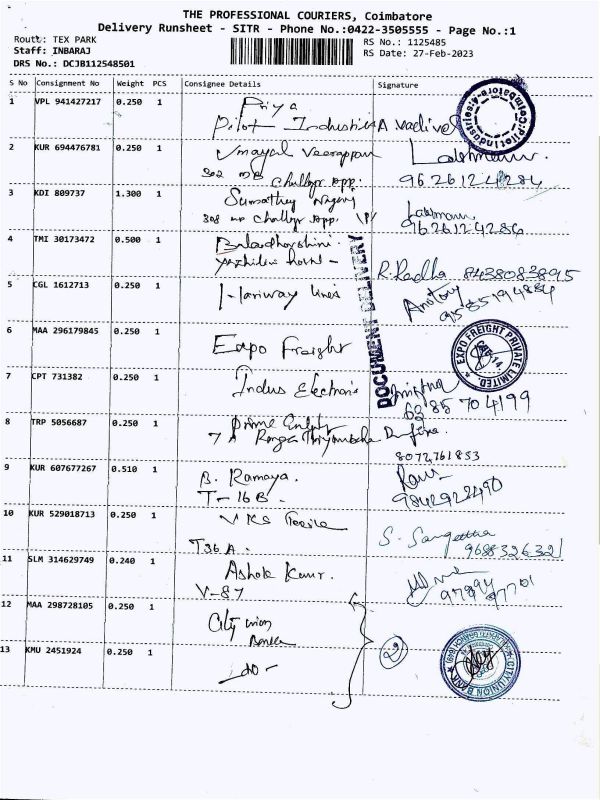 THE PROFESSIONAL COURIERS, Coimbatore
Delivery Runsheet - SITR - Phone No.:0422-3505555 - Page No.:1
Route: TEX PARK
Staff: INBARAJ
DRS No.: DCJB112548501
RS No.: 1125485
RS Date: 27-Feb-2023
S No Consignment No Weight PCS Consignee Details Signature
1 VPL 941427217 0.250 1 Priya
Pilot Industries A Vadivel
Pilot Industries Coimbatore
2 KUR 694476781 0.250 1 Umayal Veerappan Lakshmanan.
302 App. 9626124284
3 KDI 809737 1.300 1 Sumathy
308 App. 9626124284
4 TMI 30173472 0.500 1
R. Radha 8438083895
DOCUMENT DELIVERY
5 CGL 1612713 0.250 1 Hariway lines Antony
9585194884
6 MAA 296179845 0.250 1 Expo Freight
EXPO FREIGHT PRIVATE LIMITED.
7 CPT 731382 0.250 1 Indus Electronis
6385704199
8 TRP 5056687 0.250 1 Prime Entity
7 A Ranga
8072761853
9 KUR 607677267 0.510 1 B. Ramaya.
T-16 B. 9842922490
10 KUR 529018713 0.250 1 VKS Textile S. Sangeetha
T36 A. 9688326321
11 SLM 314629749 0.240 1 Ashok Kumr.
V-87 97894 97701
12 MAA 298728105 0.250 1 City union
Bank
13 KMU 2451924 0.250 1 -do- 2
CITY UNION BANK